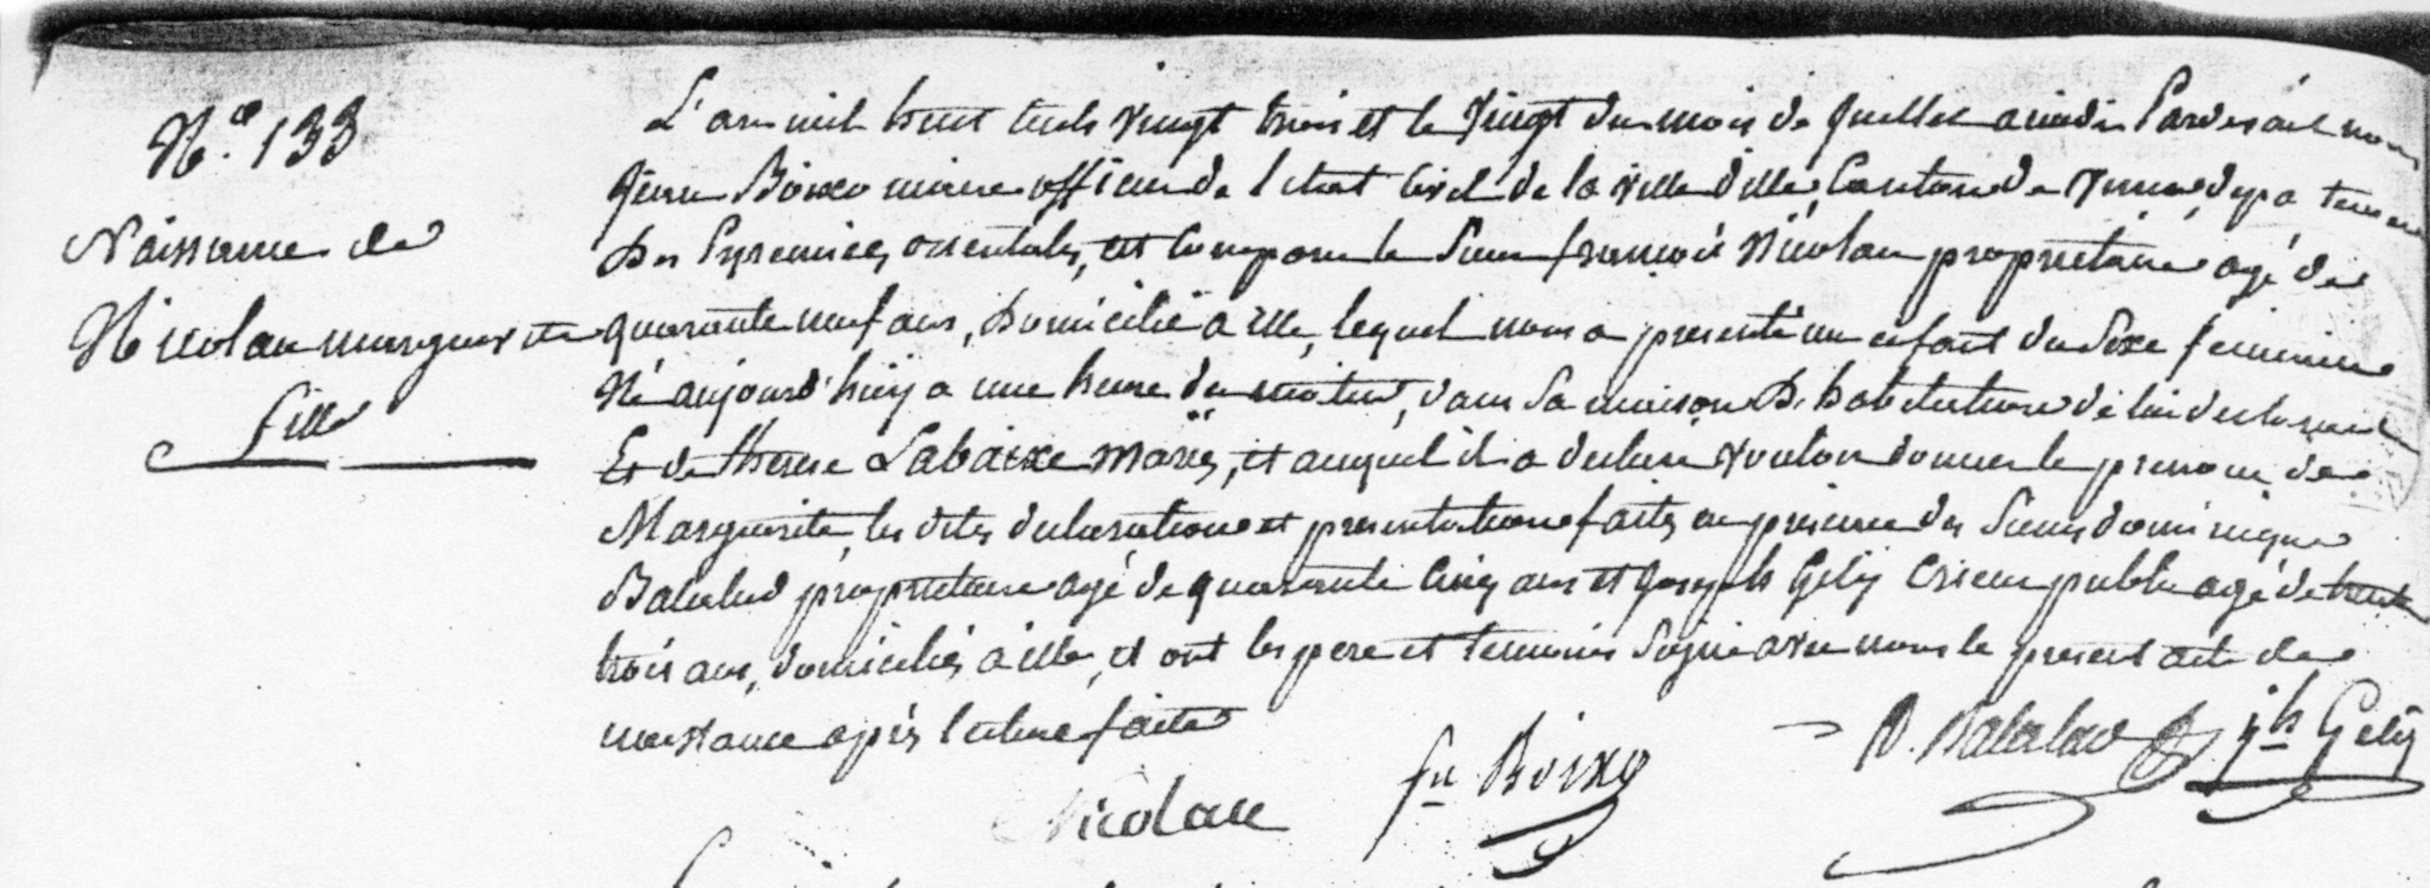 N.º 133
Naissance de
Nicolau marguerite
fille
L'an mil huit cents vingt trois et le vingt du mois de juillet a midi Pardevant nous
Boixo maire officier de l'etat Civil de la ville d'ille, Canton de vinca, depatement
Des Pyrennées orientales, est comparu le Sieur françois Nicolau proprietaire agé de
quarante neuf ans, Domicilié a ille, lequel nous a presenté un enfant du Sexe feminin
Né aujourd'huy a une heure du matin, dans Sa maison D'habitation de lui declarant
Et de therese Labaixe mariés, et auquel il a declaré vouloir donner le prenom de
Marguerite, les dites declaration et presentation faites en presence des Sieurs dominique
Balalud proprietaire agé de quarante Cinq ans et joseph Gely Crieur public agé de trente
trois ans, domiciliés a ille, et ont les pere et temoins Signé avec nous le present acte de
naissance après lecture faite
Nicolau fn Boixo D. Balalud jh Gely